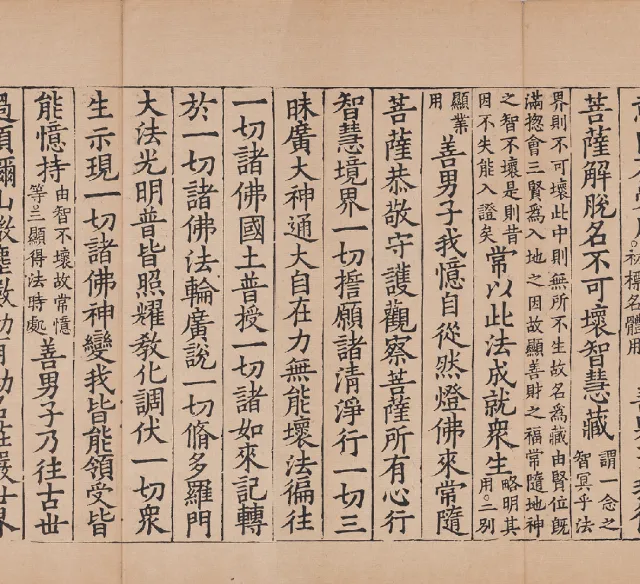 初標名體用
菩薩解脫名不可壞智慧藏
謂一念之
智冥乎法
界則不可壞此中則無所不生故名為藏由賢位既
滿揔會三賢爲入地之因故顯善財之福常隨地神
之智不壞是則昔
因不失能入證矣
常以此法成就衆生
略明其
用○二別
顯業
用
善男子我憶自從然燈佛來常隨
菩薩恭敬守護觀察菩薩所有心行
智慧境界一切誓願諸清淨行一切三
昧廣大神通大自在力無能壞法徧往
一切諸佛國土普授一切諸如來記轉
於一切諸佛法輪廣說一切脩多羅門
大法光明普皆照耀教化調伏一切衆
生示現一切諸佛神變我皆能領受皆
能憶持
由智不壞故常憶
等○三顯得法時處
善男子乃往古世
過須彌山微塵數劫有劫名莊嚴世界